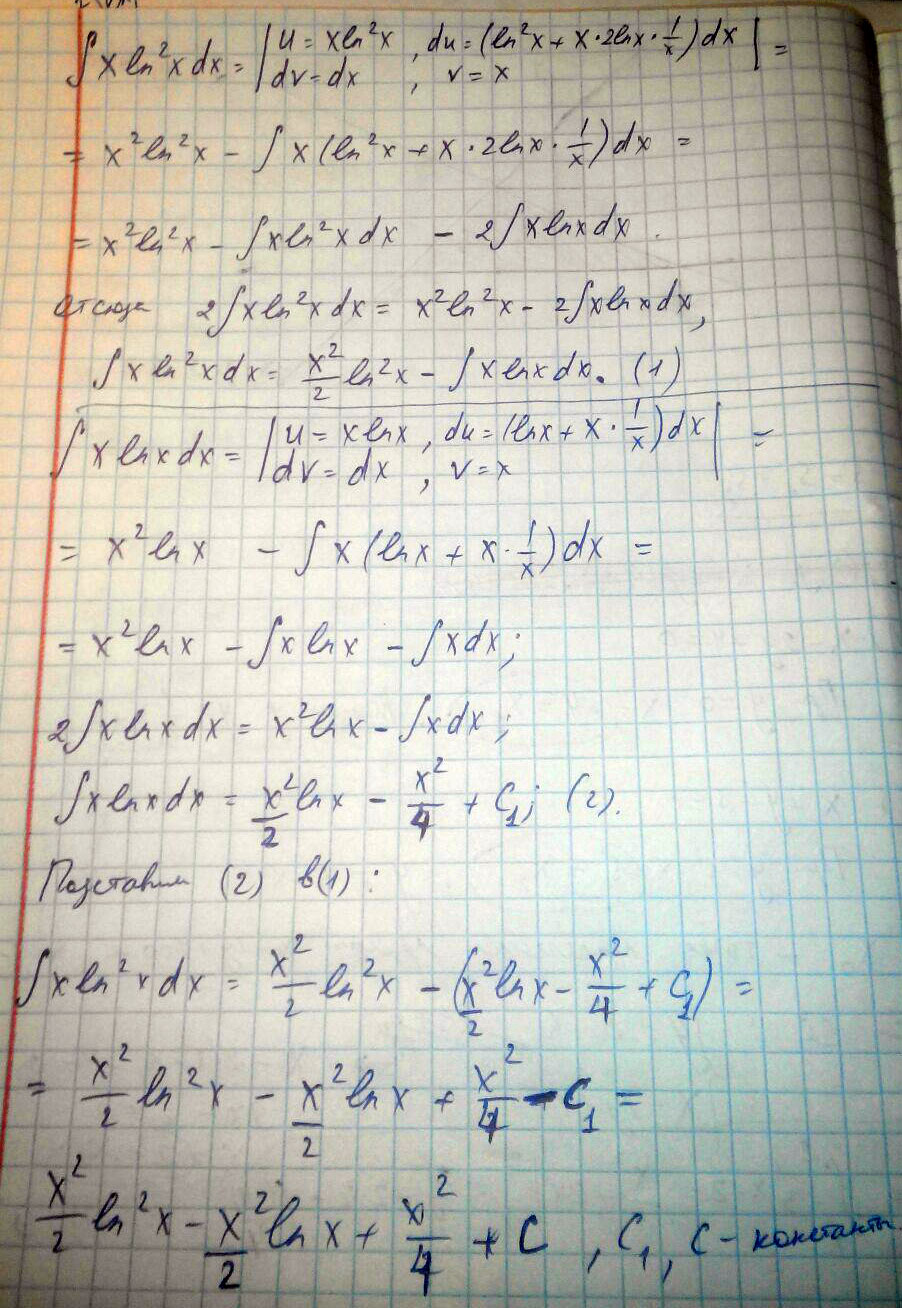 ∫ x ln²x dx = | u = x ln²x , du = (ln²x + x · 2lnx · 1/x) dx | =
dv = dx , v = x
= x² ln²x - ∫ x (ln²x + x · 2lnx · 1/x) dx =
= x² ln²x - ∫ x ln²x dx - 2∫ x lnx dx .
Отсюда 2∫ x ln²x dx = x² ln²x - 2∫ x lnx dx,
∫ x ln²x dx = x²/2 ln²x - ∫ x lnx dx. (1)
∫ x lnx dx = | u = x lnx , du = (lnx + x · 1/x) dx | =
dv = dx , v = x
= x² lnx - ∫ x (lnx + x · 1/x) dx =
= x² lnx - ∫ x lnx - ∫ x dx ;
2∫ x lnx dx = x² lnx - ∫ x dx ;
∫ x lnx dx = x²/2 lnx - x²/4 + C₁ ; (2).
Подставим (2) в (1) :
∫ x ln²x dx = x²/2 ln²x - (x²/2 lnx - x²/4 + C₁) =
= x²/2 ln²x - x²/2 lnx + x²/4 - C₁ =
x²/2 ln²x - x²/2 lnx + x²/4 + C , C₁, C - константы